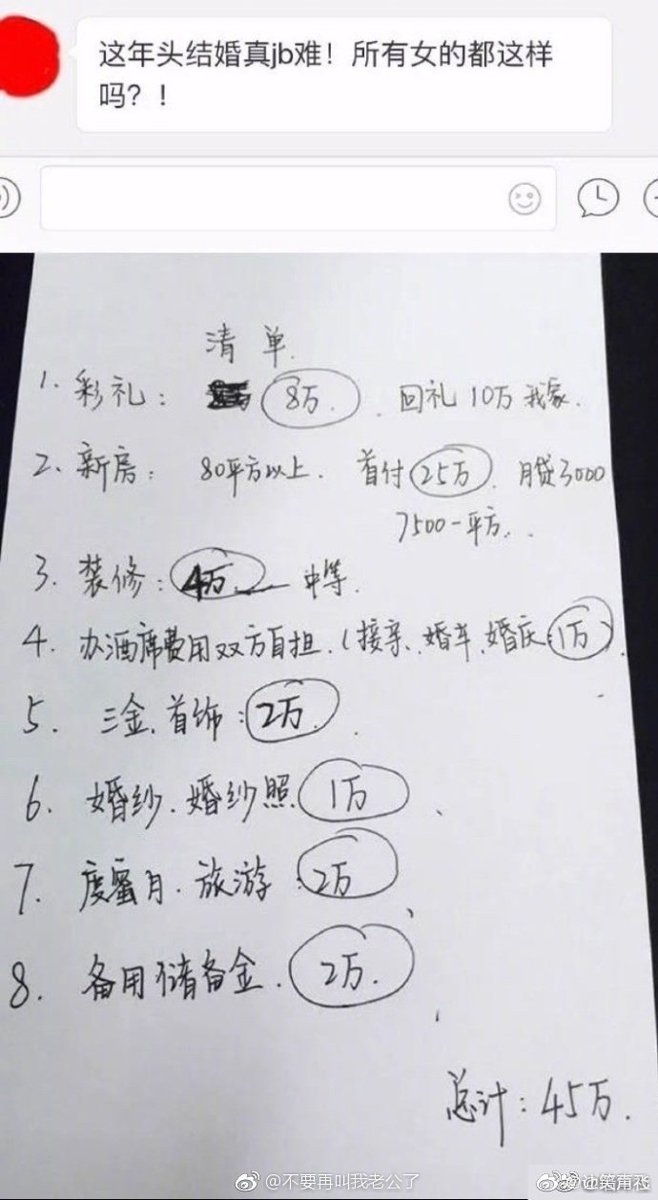 这年头结婚真jb难！所有女的都这样
吗？！
清单.
1. 彩礼： 8万. 回礼10万我家.
2、新房： 80平方以上. 首付25万. 月贷3000
7500一平方.
3. 装修：4万 中等.
4. 办酒席费用双方自担.（接亲、婚车、婚庆:1万）.
5. 三金.首饰：2万.
6. 婚纱.婚纱照 1万
7. 度蜜月.旅游：2万
8. 备用储备金. 2万.
总计：45万.
@不要再叫我老公了